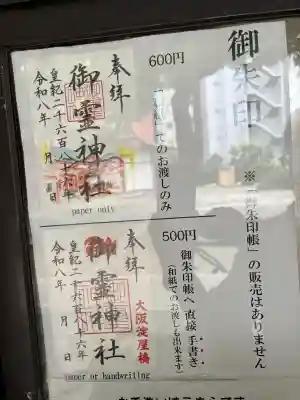 御朱印
※「御朱印帳」の販売はありません
600円
てのお渡しのみ
奉拝
御霊神社
皇紀二千六百八十六年
令和八年 月 日
paper only
500円
御朱印帳へ 直接 手書き
(和紙でのお渡しも出来ます)
大阪淀屋橋
奉拝
御霊神社
皇紀二千六百八十六年
令和八年 月 日
paper or handwriting